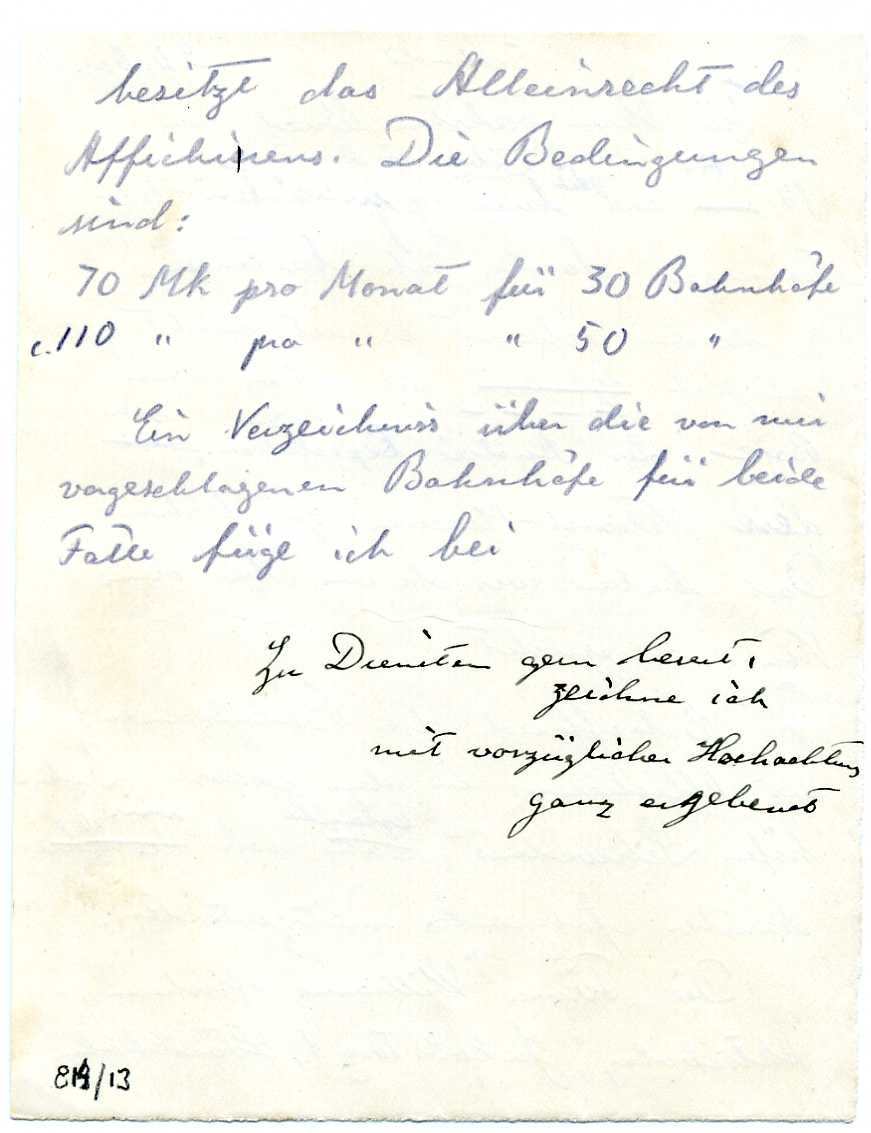 besitzt das Alleinrecht des
Affichirens. Die Bedingungen
sind:
70 Mk pro Monat für 30 Bahnhöfe
c. 110 " pro " " 50 "
Ein Verzeichniss über die von mir
vorgeschlagenen Bahnhöfe für beide
Fälle füge ich bei
Zu Diensten gern bereit,
zeichne ich
mit vorzüglicher Hochachtung
ganz ergebenst
/13